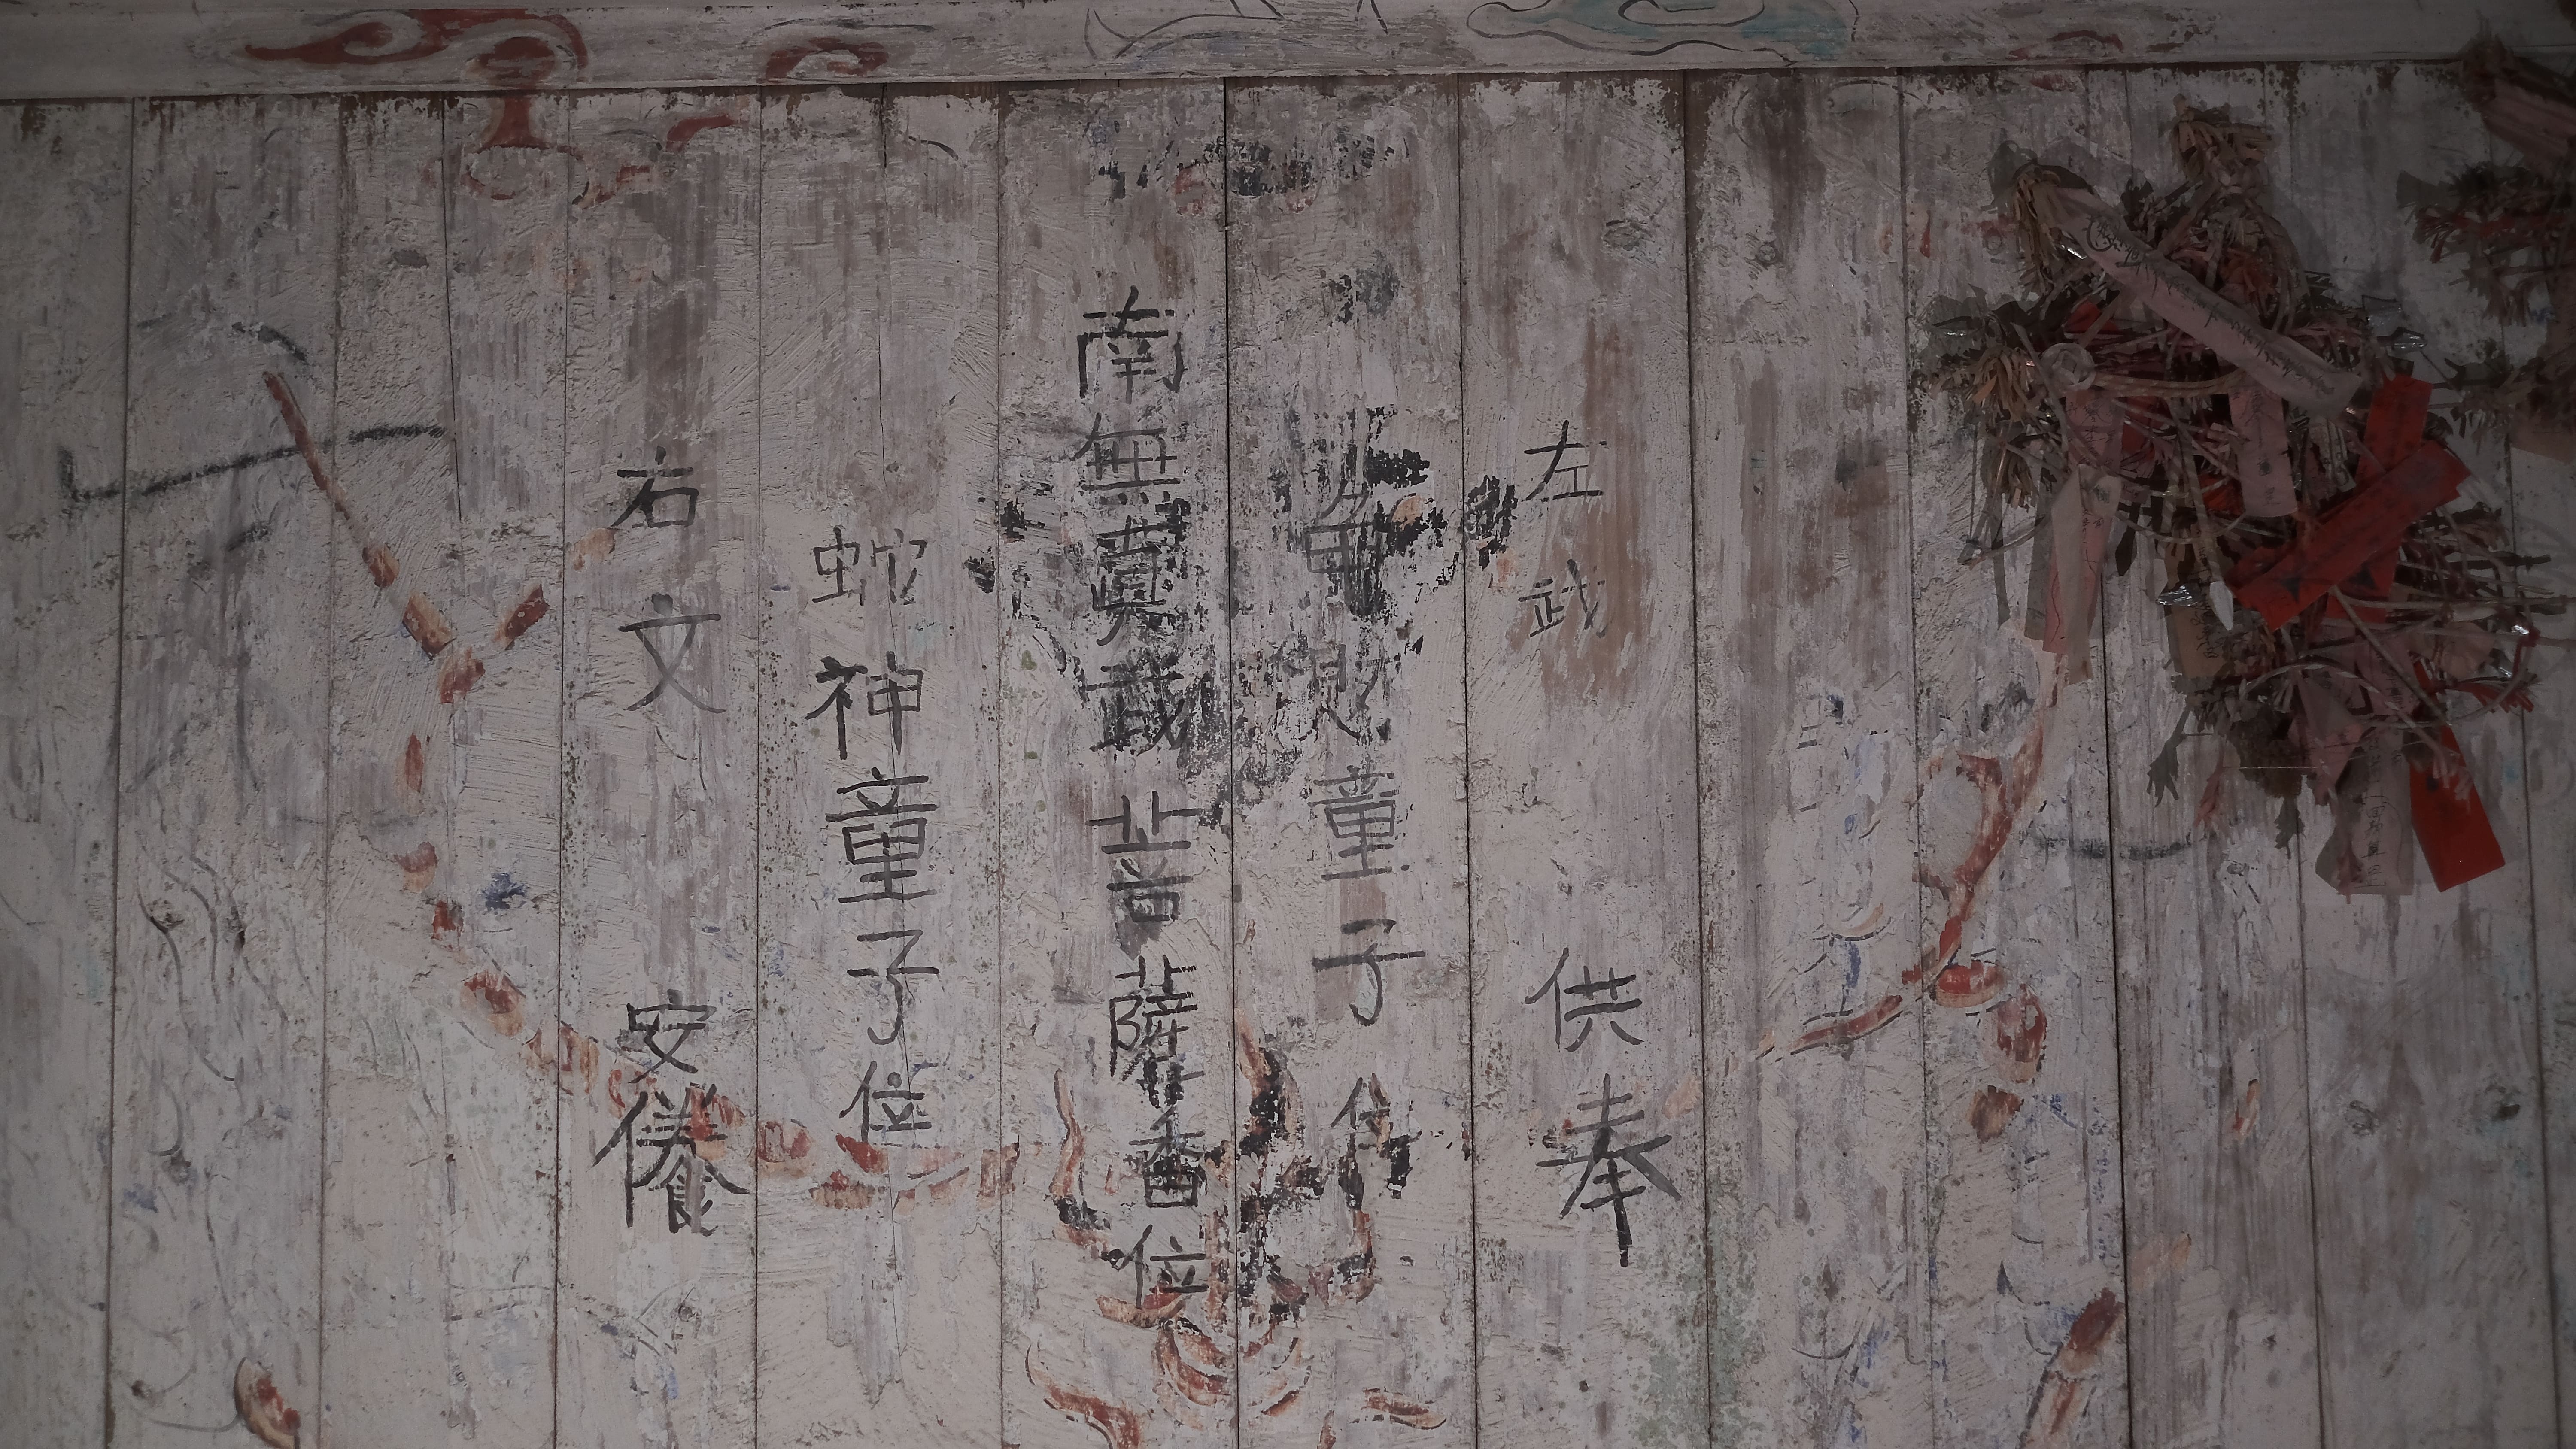 左武 供奉
童子位
南無真武菩薩香位
蛇神童子位
右文 安